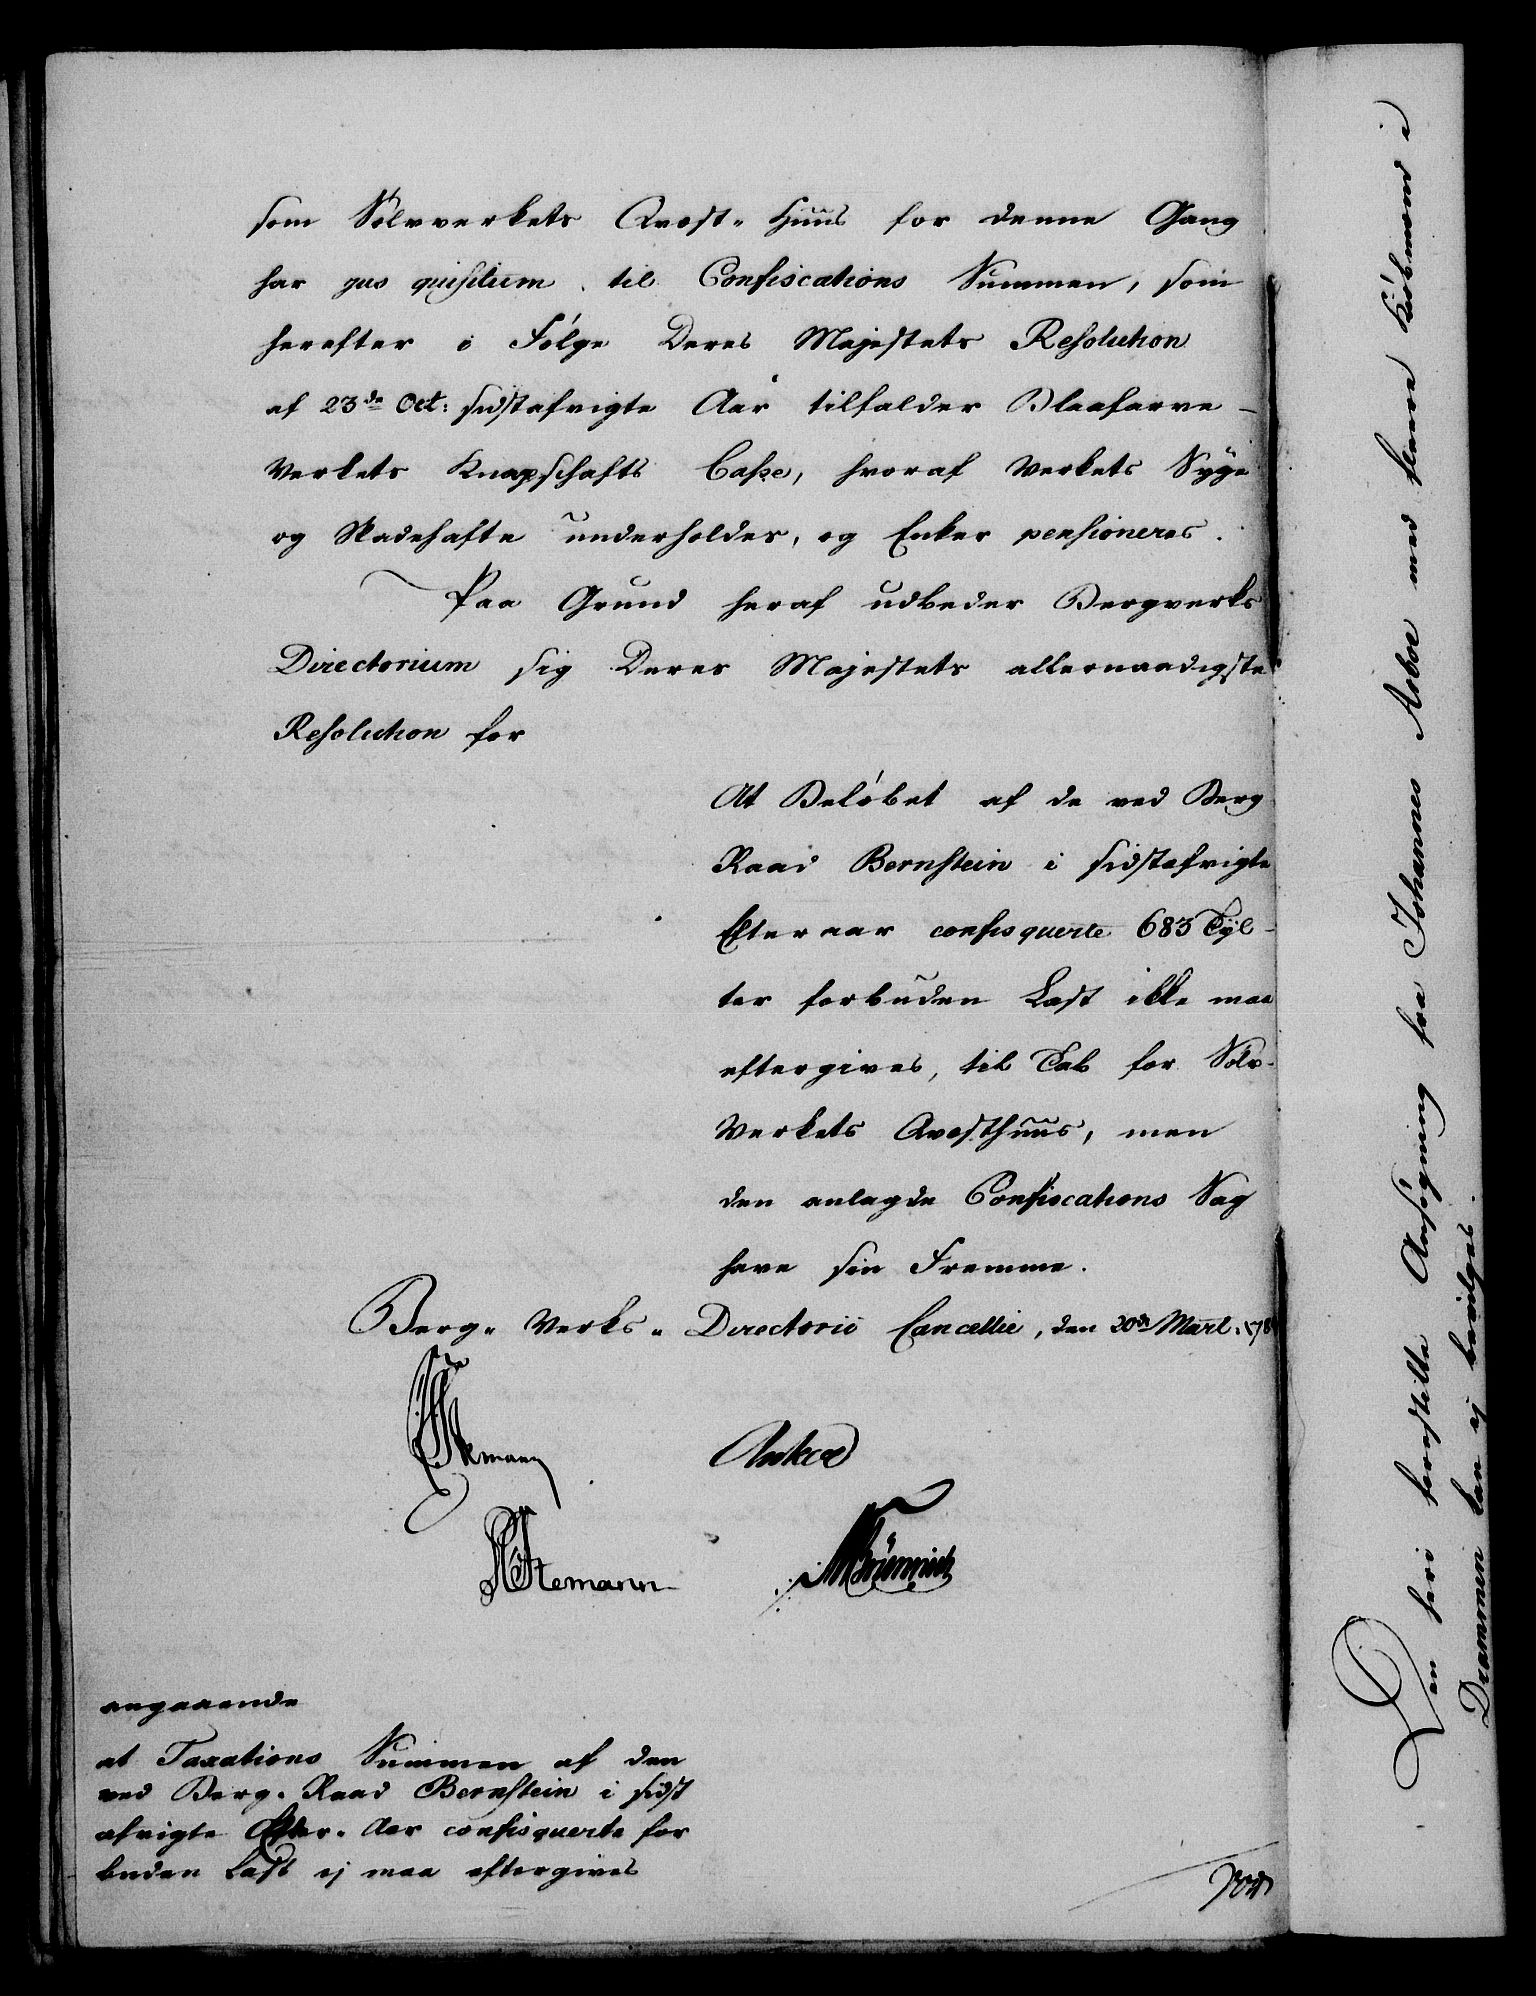 som Sølvverkets Qvæst-Huus for denne Gang
har jus quæsitum til Confiscations Summen, som
herefter i Følge Deres Majestets Resolution
af 23de Oct: sidstafvigte Aar tilfalder Blaafarve-
Verkets Knapschafts Casse, hvoraf Verkets Syge
og Skadehafte underholdes, og Enker pensioneres.
Paa Grund heraf udbeder Bergverks
Directorium sig Deres Majestets allernaadigste
Resolution for
At Beløbet af de ved Berg
Raad Bernstein i sidstafvigte
Efteraar confisquerte 683 Tyl-
ter forbuden Last ikke maa
eftergives, til Tab for Sølv-
Verkets Qvæsthuus, men
den anlagde Confiscations Sag
have sin Fremme.
Berg- Verks- Directorii Cancellie, den 20de Mart. 178
Anker
Stemann
MBrünnich
angaaende
at Taxations Summen af den
ved Berg-Raad Bernstein i sidst
afvigte Efter-Aar confisquerte for
buden Last ej maa eftergives
Den heri forestilte Ansøgning fra Johannes Arboe med flere Kiøbmænd i
Drammen kan ej bevilges.